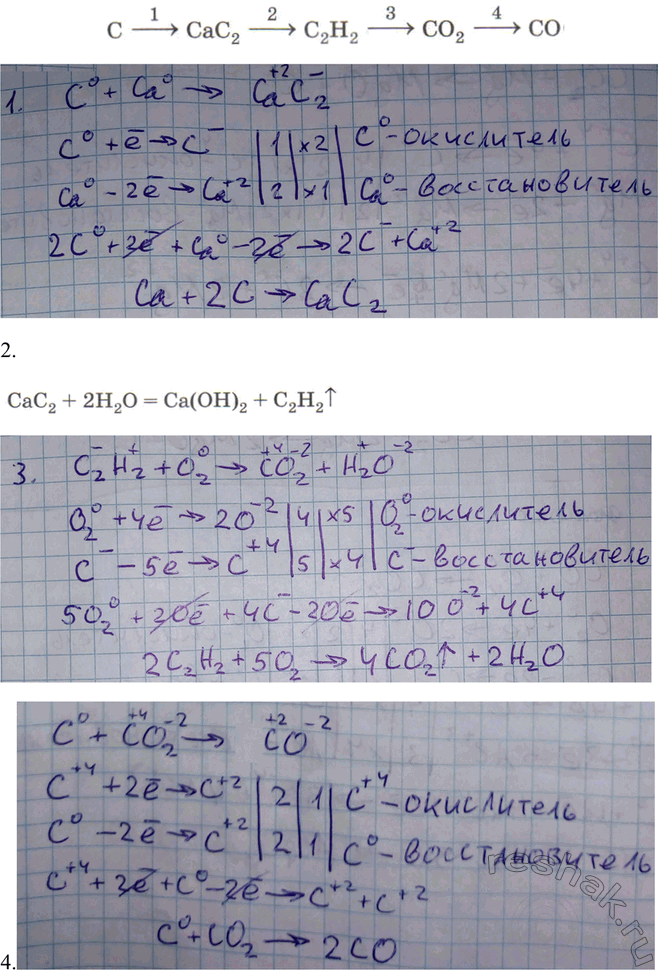 C —1→ CaC₂ —2→ C₂H₂ —3→ CO₂ —4→ CO
1. C⁰ + Ca⁰ → Ca⁺²C₂⁻
C⁰ + ē → C⁻ | 1 | ×2 | C⁰ - окислитель
Ca⁰ - 2ē → Ca⁺² | 2 | ×1 | Ca⁰ - восстановитель
2C⁰ + 2ē + Ca⁰ - 2ē → 2C⁻ + Ca⁺²
Ca + 2C → CaC₂
2.
CaC₂ + 2H₂O = Ca(OH)₂ + C₂H₂↑
3. C₂⁻H₂⁺ + O₂⁰ → C⁺⁴O₂⁻² + H₂⁺O⁻²
O₂⁰ + 4ē → 2O⁻² | 4 | ×5 | O₂⁰ - окислитель
C⁻ - 5ē → C⁺⁴ | 5 | ×4 | C⁻ - восстановитель
5O₂⁰ + 20ē + 4C⁻ - 20ē → 10O⁻² + 4C⁺⁴
2C₂H₂ + 5O₂ → 4CO₂↑ + 2H₂O
C⁰ + C⁺⁴O₂⁻² → C⁺²O⁻²
C⁺⁴ + 2ē → C⁺² | 2 | 1 | C⁺⁴ - окислитель
C⁰ - 2ē → C⁺² | 2 | 1 | C⁰ - восстановитель
C⁺⁴ + 2ē + C⁰ - 2ē → C⁺² + C⁺²
C⁰ + CO₂ → 2CO
4.
reshak.ru